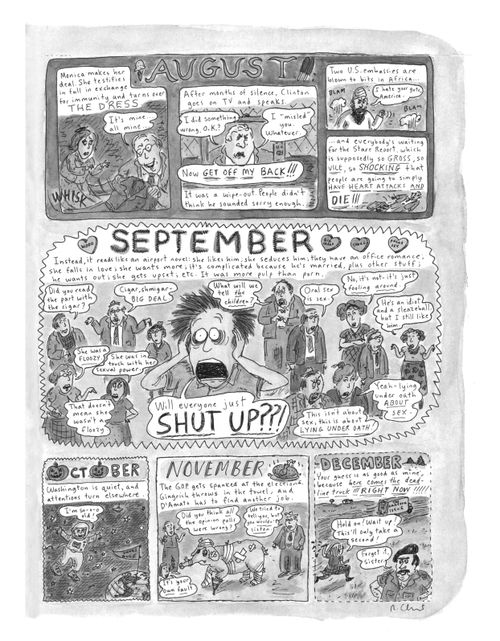 AUGUST
Monica makes her
deal. She testifies
in full in exchange
for immunity and turns over
THE DRESS
It's mine
all mine.
WHISK
After months of silence, Clinton
goes on TV and speaks.
I did something
wrong, O.K.?
I "misled"
you.
Whatever.
Now GET OFF MY BACK!!!
It was a wipe-out. People didn't
think he sounded sorry enough.
Two U.S. embassies are
blown to bits in Africa...
I hate your guts,
America.
BLAM
BLAM
...and everybody's waiting
for the Starr Report, which
is supposedly so GROSS, so
VILE, so SHOCKING that
people are going to simply
HAVE HEART ATTACKS AND
DIE!!!
SEPTEMBER
Instead, it reads like an airport novel: she likes him; she seduces him; they have an office romance;
she falls in love; she wants more; it's complicated because he's married, plus other stuff;
he wants out; she gets upset; etc. It was more pulp than porn.
Did you read
the part with
the cigar?
Cigar, shmigar-
BIG DEAL.
What will we
tell the
children?
Oral sex
is sex
No, it's not- it's just
fooling around.
He's an idiot
and a sleazeball
but I still like
him
She was a
FLOOZY
She was in
touch with her
sexual power.
That doesn't
mean she
wasn't a
floozy
Will everyone just
SHUT UP??!
This isn't about
sex, this is about
LYING UNDER OATH
Yeah-lying
under oath
ABOUT
SEX
OCTOBER
Washington is quiet, and
attentions turn elsewhere
I'm wrong
old!
NOVEMBER
The GOP gets spanked at the elections.
Gingrich throws in the towel, and
D'Amato has to find another job.
Did you think all
the opinion polls
were wrong?
We tried to
tell you, but
you wouldn't
listen
It's your
own fault
DECEMBER
Your guess is as good as mine,
because here comes the dead-
line truck !!! RIGHT NOW !!!!!
Hold on! Wait up!
This'll only take a
second!
Forget it,
sister
R. Chast